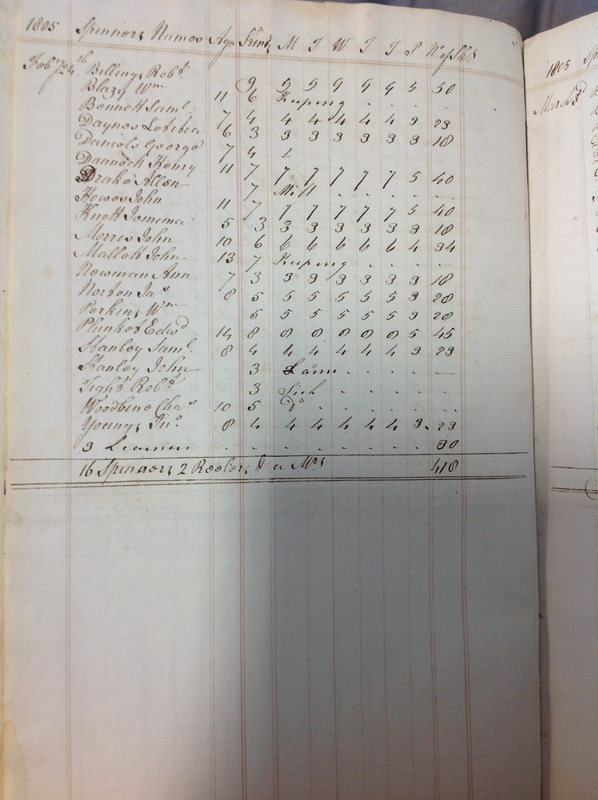 1805 Spinners Names Age Stint M T W T T S No of Sks
Feby 24th Billing Robt 9 9 9 9 9 9 5 50
Blazy Wm 11 6 Keeping
Bennett Saml 7 4 4 4 4 4 4 3 23
Daynes Letitia 6 3 3 3 3 3 3 3 18
Daniels George 7 4
Dannock Henry 11 7 7 7 7 7 7 5 40
Drake Allen 7 Mill
Hewes John 11 7 7 7 7 7 7 5 40
Knott Jemima 5 3 3 3 3 3 3 3 18
Morris John 10 6 6 6 6 6 6 4 34
Mallett John 13 7 Keeping
Newman Ann 7 3 3 3 3 3 3 3 18
Norton Jas 8 5 5 5 5 5 5 3 28
Perkins Wm 5 5 5 5 5 5 3 28
Plunket Edwd 14 8 8 8 8 8 8 5 45
Stanley Saml 8 4 4 4 4 4 4 3 23
Stanley John 3 Lame
Tight Robt 3 Sick
Woodbine Chas 10 5 Do
Youngs Jno 8 4 4 4 4 4 4 3 23
3 Learners 30
16 Spinners 2 Reelers & a Mrs 418
1805 Sp
March 3d